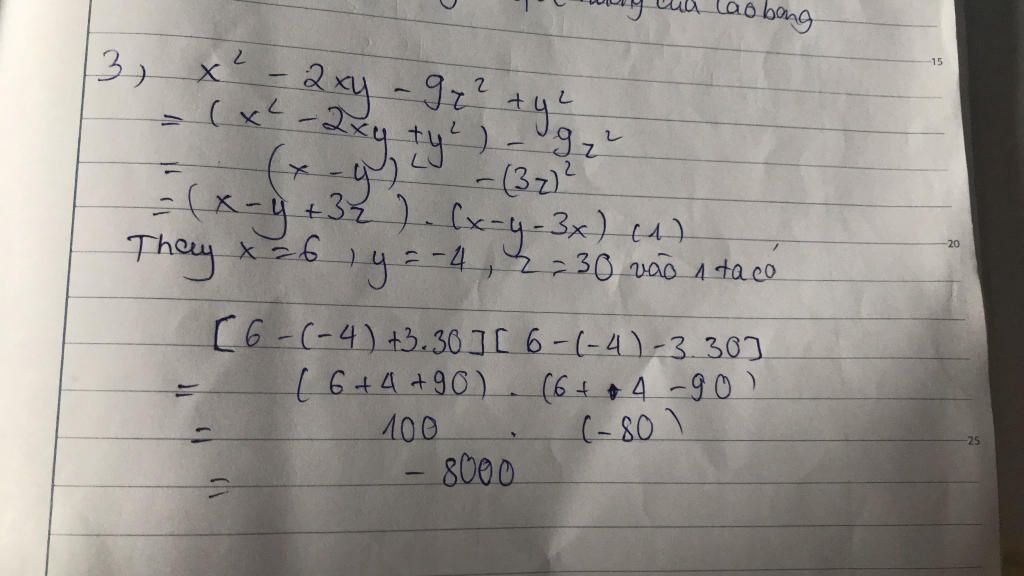 của Caobang
15
3) x² - 2xy - 9z² + y²
= (x² - 2xy + y²) - 9z²
= (x - y)² - (3z)²
= (x - y + 3z) . (x - y - 3x) (1)
20
Thay x = 6, y = -4, z = 30 vào 1 ta có
[6 - (-4) + 3.30][6 - (-4) - 3.30]
= (6 + 4 + 90) . (6 + 4 - 90)
= 100 . (-80)
25
= - 8000